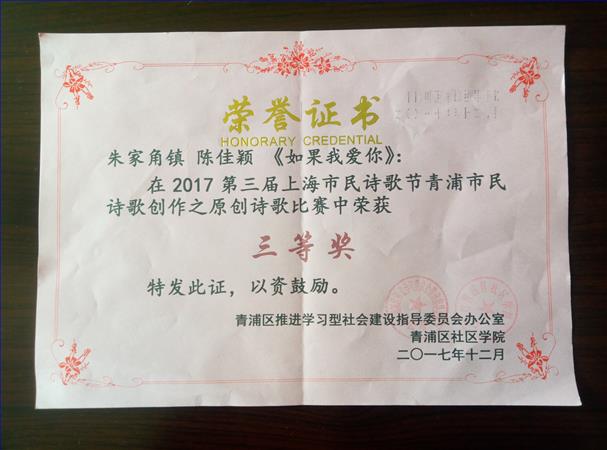 荣誉证书
HONORARY CREDENTIAL
朱家角镇 陈佳颖 《如果我爱你》：
在 2017 第三届上海市民诗歌节青浦市民
诗歌创作之原创诗歌比赛中荣获
三等奖
特发此证，以资鼓励。
青浦区推进学习型社会建设指导委员会办公室
青浦区社区学院
二〇一七年十二月